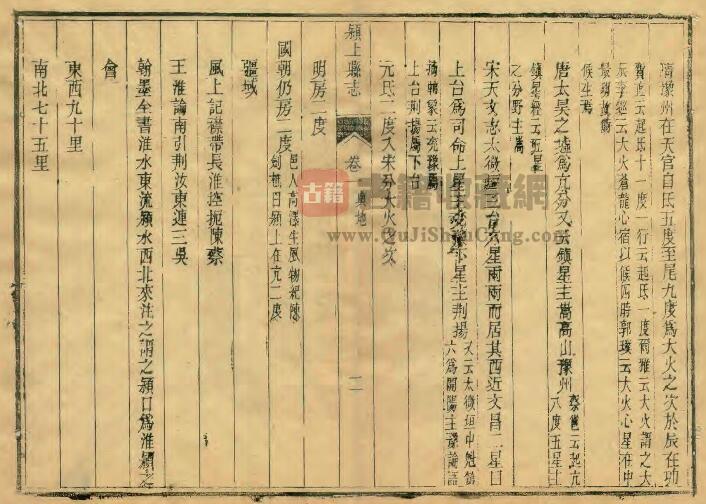 隋潁州在天官自氐五度至尾九度為大火之次於辰在卯
費直云起氐十一度一行云起氐一度爾雅云大火謂之大
辰孝經云大火蒼龍心宿以候四時郭璞云大火心星在中
最明故時
候主焉
唐太昊之墟為亢分又云鎮星主嵩高山豫州
蔡邕云起亢
八度五星主
鎮星經云班星
之分野主嵩
宋天文志太微垣三台六星兩兩而居其西近文昌二星曰
上台為司命上星主兗豫下星主荆揚
又云太微垣中魁第
六為開陽主豫
揚朝象云兗豫屬
上台荆揚屬下台
元氐二度入宋分大火之次
潁上縣志
卷一
輿地
二
明房二度
國朝仍房二度
邑人高澤生風物紀陳
卓曰潁上在亢二度
疆域
風土記襟帶長淮控扼陳蔡
王淮論南引荆汝東連三吳
翰墨全書淮水東流潁水西北來注之謂之潁口為淮潁之
會
東西九十里
南北七十五里
古籍
古籍收藏網
www.GuJiShouCang.com